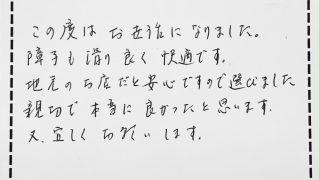 この度は お世話になりました。
障子も滑り良く 快適です。
地元のお店だと安心ですので選びました
親切で 本当に 良かったと思います.
又、宜しく お願いします.